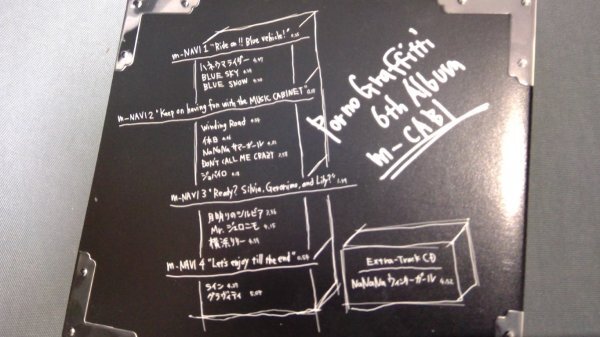 m-NAVI 1 "Ride on!! Blue vehicle!"
ハネウマライダー
BLUE SKY
BLUE SNOW
m-NAVI 2 "Keep on having fun with the MUSIC CABINET"
Winding Road
休日
NaNaNa サマーガール
DON'T CALL ME CRAZY
ジョバイロ
m-NAVI 3 "Ready? Silvia, Geronimo, and Lily?"
月明りのシルビア
Mr. ジェロニモ
横浜リリー
m-NAVI 4 "Let's enjoy till the end"
ライン
グラヴィティ
Porno Graffitti
6th Album
m-CABI
Extra-Track CD
NaNaNa ウィンターガール